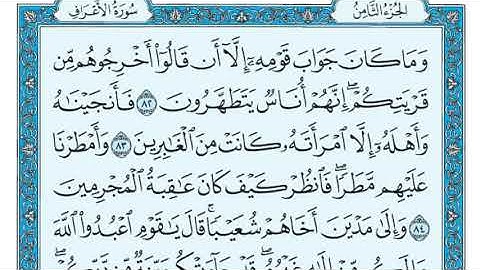 الجزء الثامن سورة الأعراف
وَمَا كَانَ جَوَابَ قَوْمِهِۦٓ إِلَّآ أَن قَالُوٓا۟ أَخْرِجُوهُم مِّن
قَرْيَتِكُمْ ۖ إِنَّهُمْ أُنَاسٌ يَتَطَهَّرُونَ ٨٢ فَأَنجَيْنَٰهُ
وَأَهْلَهُۥٓ إِلَّا ٱمْرَأَتَهُۥ كَانَتْ مِنَ ٱلْغَٰبِرِينَ ٨٣ وَأَمْطَرْنَا
عَلَيْهِم مَّطَرًا ۖ فَٱنظُرْ كَيْفَ كَانَ عَٰقِبَةُ ٱلْمُجْرِمِينَ
٨٤ وَإِلَىٰ مَدْيَنَ أَخَاهُمْ شُعَيْبًا ۗ قَالَ يَٰقَوْمِ ٱعْبُدُوا۟ ٱللَّهَ